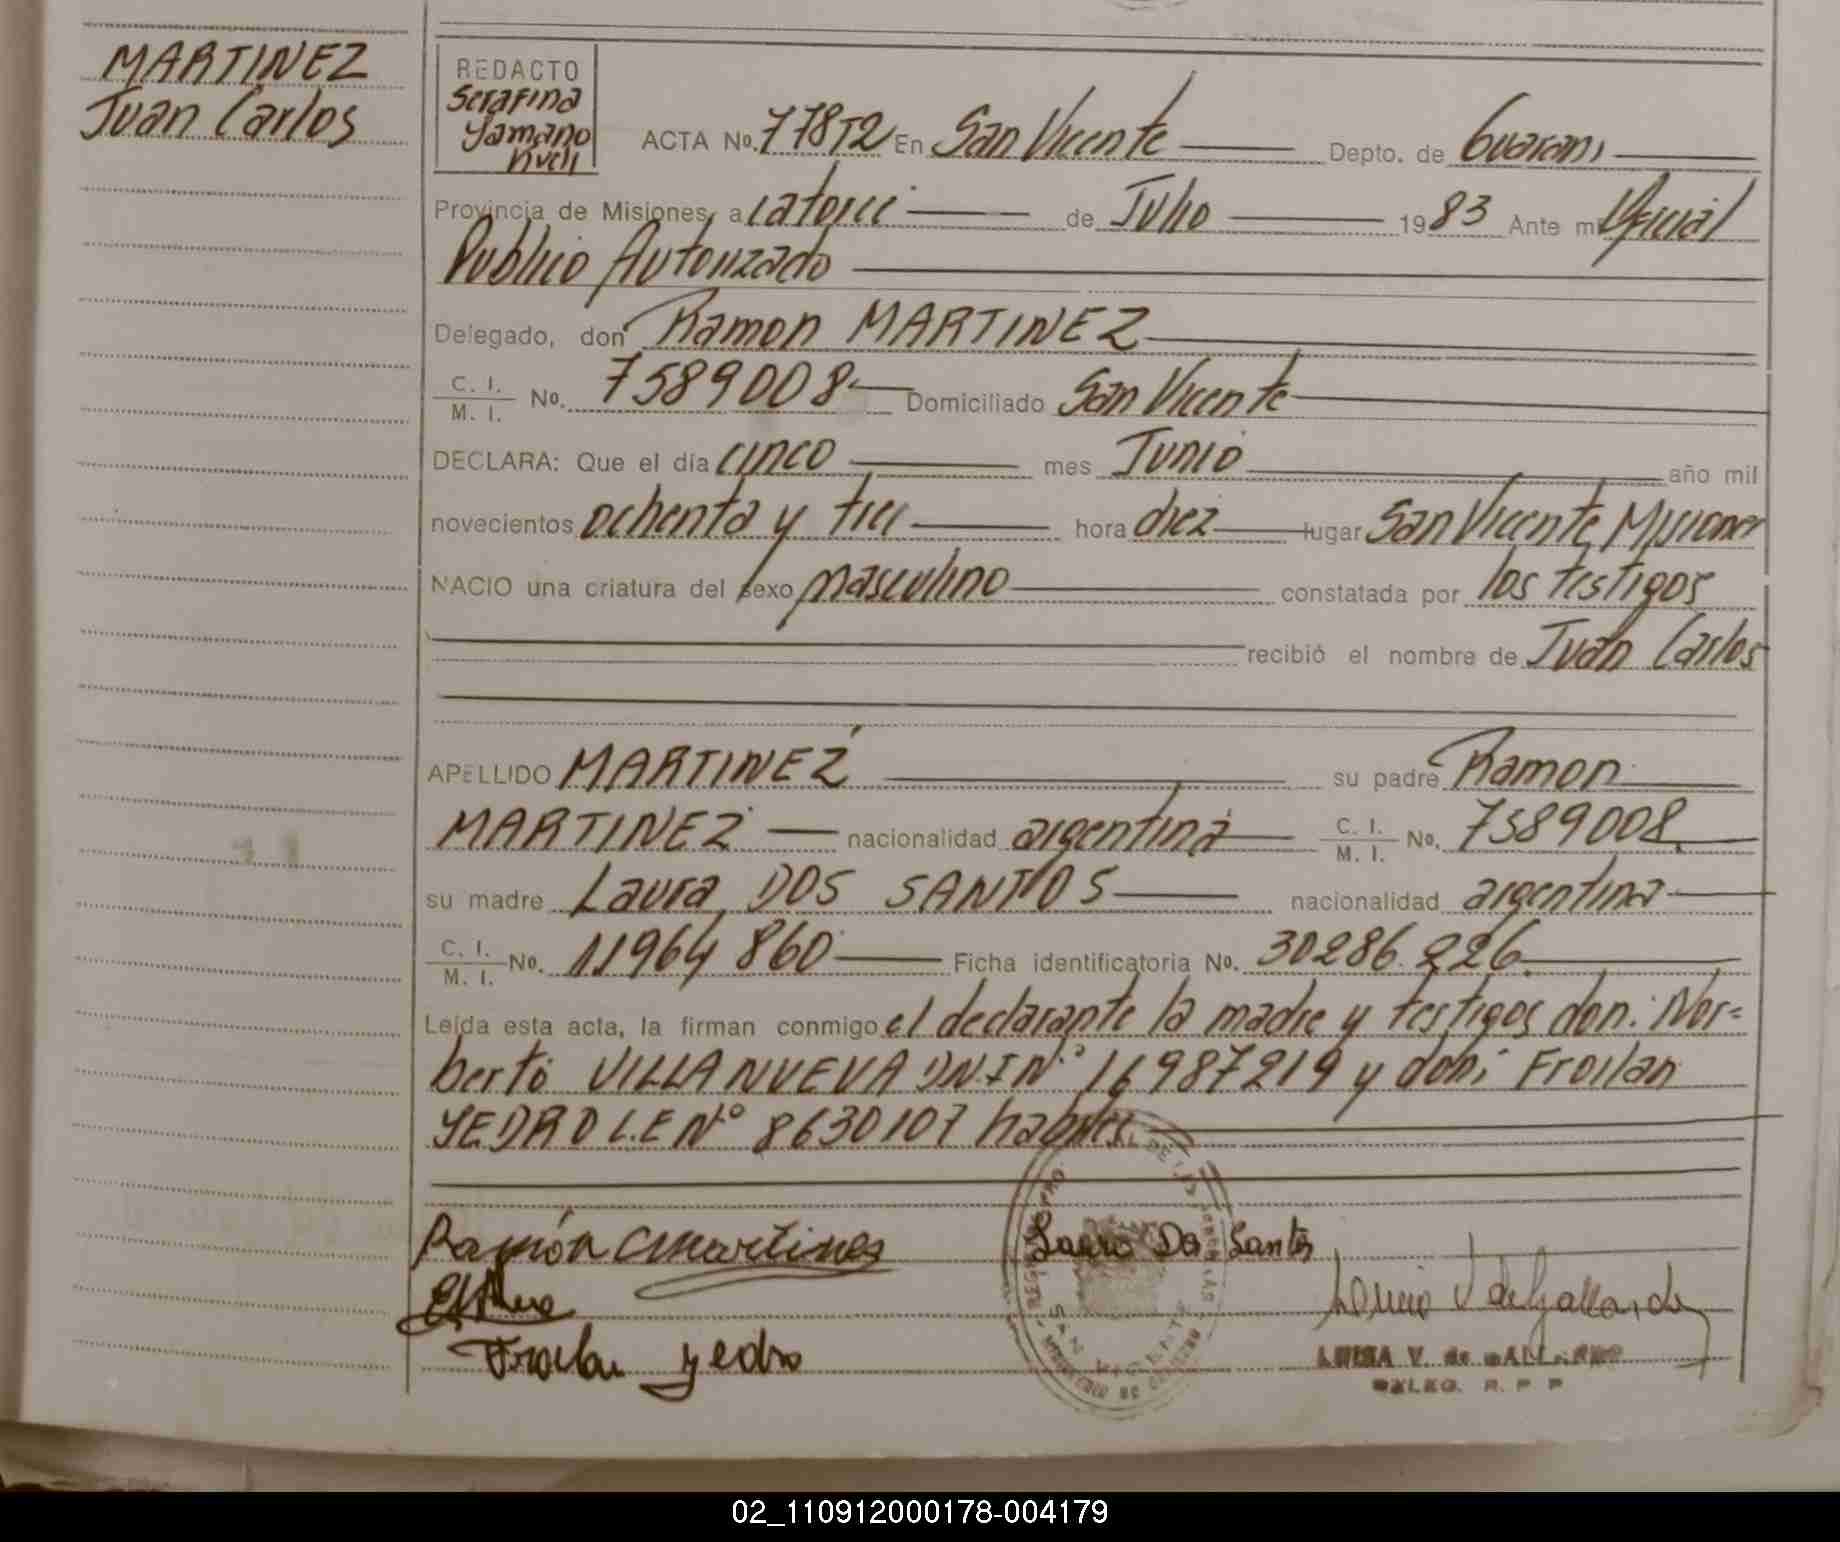 MARTINEZ
Juan Carlos
REDACTO
Serafina
Yamano
ACTA No. 77852 En San Vicente Depto. de Guarani
Provincia de Misiones, a catorce de Julio 1983 Ante mi Oficial
Publico Autorizado
Delegado, don Ramon MARTINEZ
C. I.
M. I. No. 7589008 Domiciliado San Vicente
DECLARA: Que el día cinco mes Junio año mil
novecientos ochenta y tres hora diez lugar San Vicente, Misiones
NACIO una criatura del sexo masculino constatada por los testigos
recibió el nombre de Juan Carlos
APELLIDO MARTINEZ su padre Ramon
MARTINEZ nacionalidad argentina C. I. M. I. No. 7589008
su madre Laura DOS SANTOS nacionalidad argentina
C. I. M. I. No. 11964 860 Ficha identificatoria No. 30286.226
Leída esta acta, la firman conmigo el declarante la madre y testigos don: Nor=
berto VILLANUEVA DNI Nº 16987219 y don: Froilan
YEDRO L.E Nº 8630107 habiles
Ramón Martines
Laura Dos Santos
Froilan Yedro
SAN VICENTE
LUISA V. de GALLARDO
DELEG. R. P. P
02_110912000178-004179